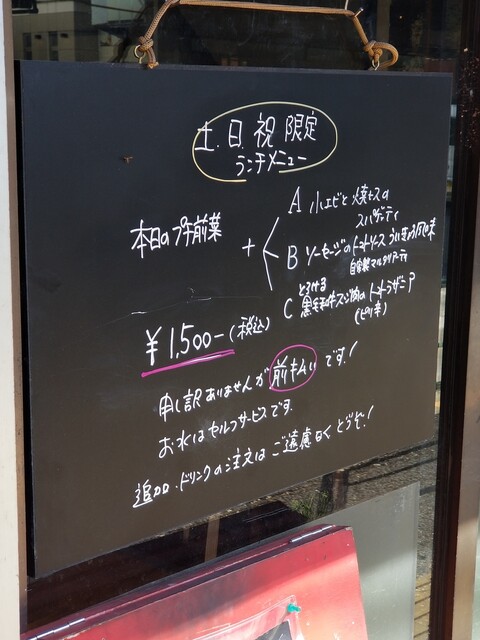 土.日.祝 限定
ランチメニュー
本日のプチ前菜
+
A 小エビと焼ナスの
スパゲティ
B ソーセージのトマトソース ういきょう風味
自家製マルタリアーティ
C とろける
黒毛和牛スジ肉のトマトラザニア
(ピリ辛)
¥1,500-(税込)
申し訳ありませんが前払いです!
お水はセルフサービスです.
追加.ドリンクの注文はご遠慮なくどうぞ!